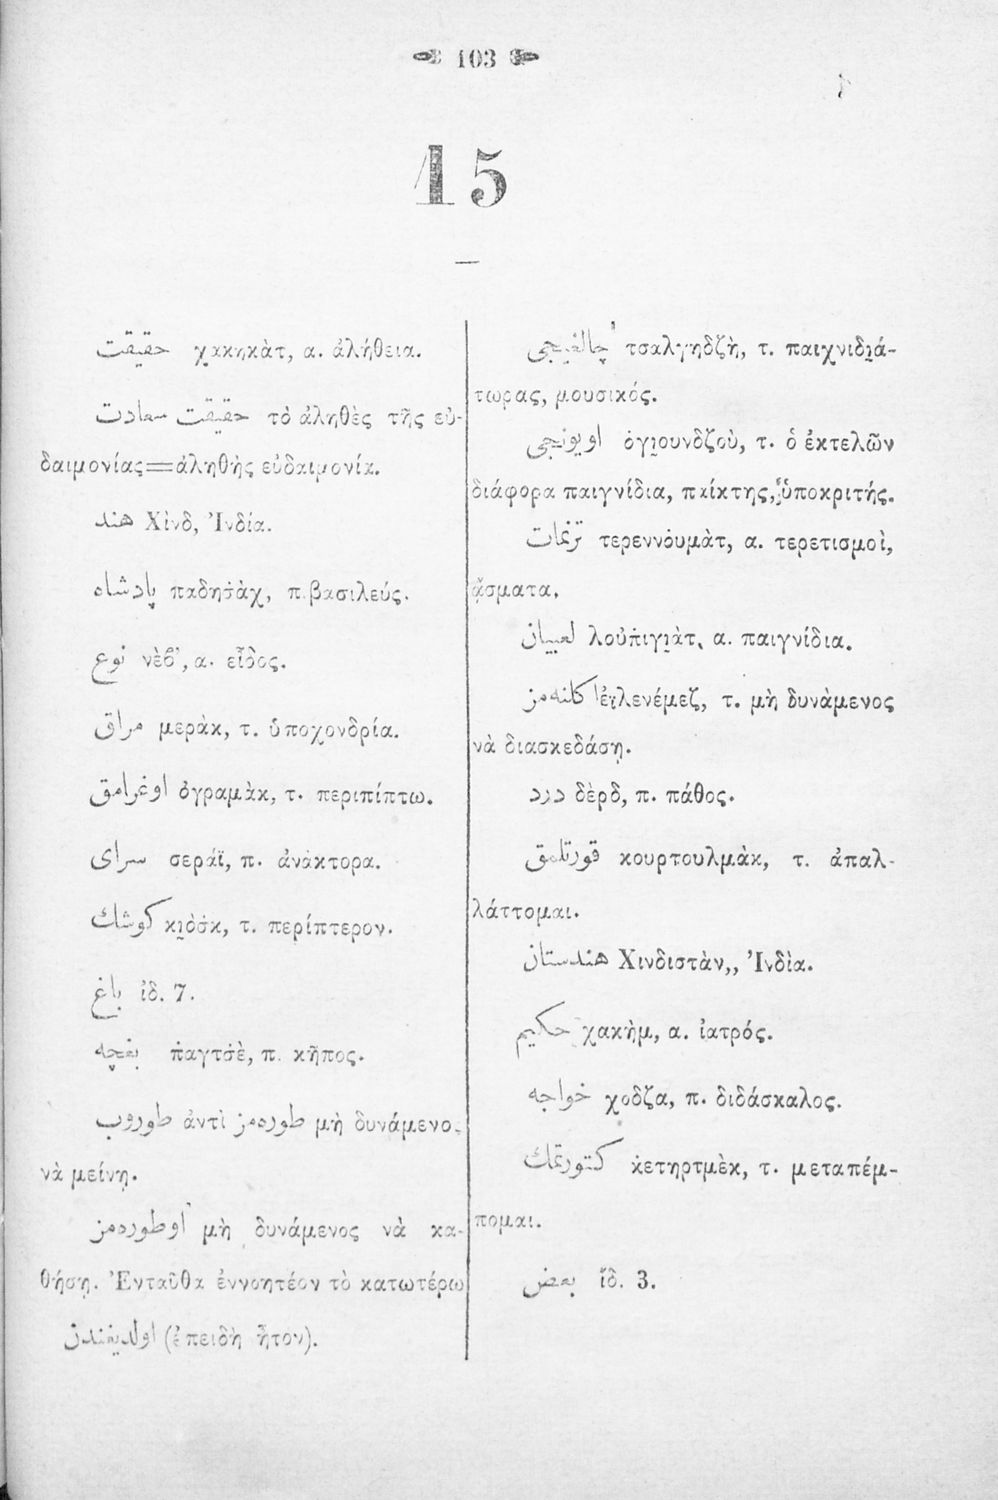 103
15
حقيقت χακηκὰτ, α. ἀλήθεια.
حقيقت سعادت τὸ ἀληθὲς τῆς εὐ-
δαιμονίας=ἀληθὴς εὐδαιμονία.
هند Χὶνδ, Ἰνδία.
پادشاه παδησ̇ὰχ, π. βασιλεύς.
نوع νὲβ', α. εἶδος.
مراق μεράκ, τ. ὑποχονδρία.
اوغرامق ὀγραμὰκ, τ. περιπίπτω.
سراى σεράϊ, π. ἀνάκτορα.
كوشك κι̯ὸσ̇κ, τ. περίπτερον.
باغ ἰδ. 7.
بغچه π̇αγτσ̇ὲ, π. κῆπος.
طوروب ἀντὶ طورهمز μὴ δυνάμενος
νὰ μείνῃ.
اوطورهمز μὴ δυνάμενος νὰ κα-
θήσῃ. Ἐνταῦθα ἐννοητέον τὸ κατωτέρω
اولديغندن (ἐπειδὴ ἦτον).
چالغيجى τσαλγηδζὴ, τ. παιχνιδι̯ά-
τωρας, μουσικός.
اويونجى ὀγι̯ουνδζοὺ, τ. ὁ ἐκτελῶν
διάφορα παιγνίδια, παίκτης, ὑποκριτής.
ترنمات τερεννουμὰτ, α. τερετισμοὶ,
ᾄσματα.
لعبيان λουπ̇ιγι̯ὰτ, α. παιγνίδια.
اكلنهمز ἐϊλενέμεζ, τ. μὴ δυνὰμενος
νὰ διασκεδάσῃ.
درد δὲρδ, π. πάθος.
قورتلمق κουρτουλμὰκ, τ. ἀπαλ-
λάττομαι.
هندستان Χινδιστὰν,, Ἰνδὶα.
حكيم χακὴμ, α. ἰατρός.
خواجه χοδζα, π. διδάσκαλος.
كتورتمك κ̇ετηρτμὲκ, τ. μεταπέμ-
πομαι.
بعض ἴδ. 3.